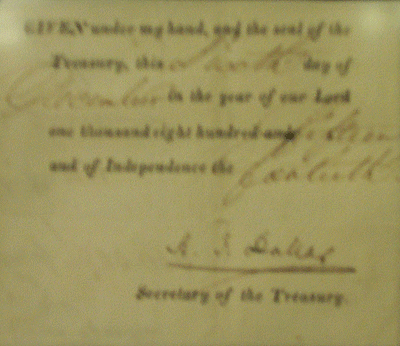 GIVEN under my hand, and the seal of the
Treasury, this day of
December in the year of our Lord
one thousand eight hundred and fifteen
and of Independence the
A. J. Dallas
Secretary of the Treasury.